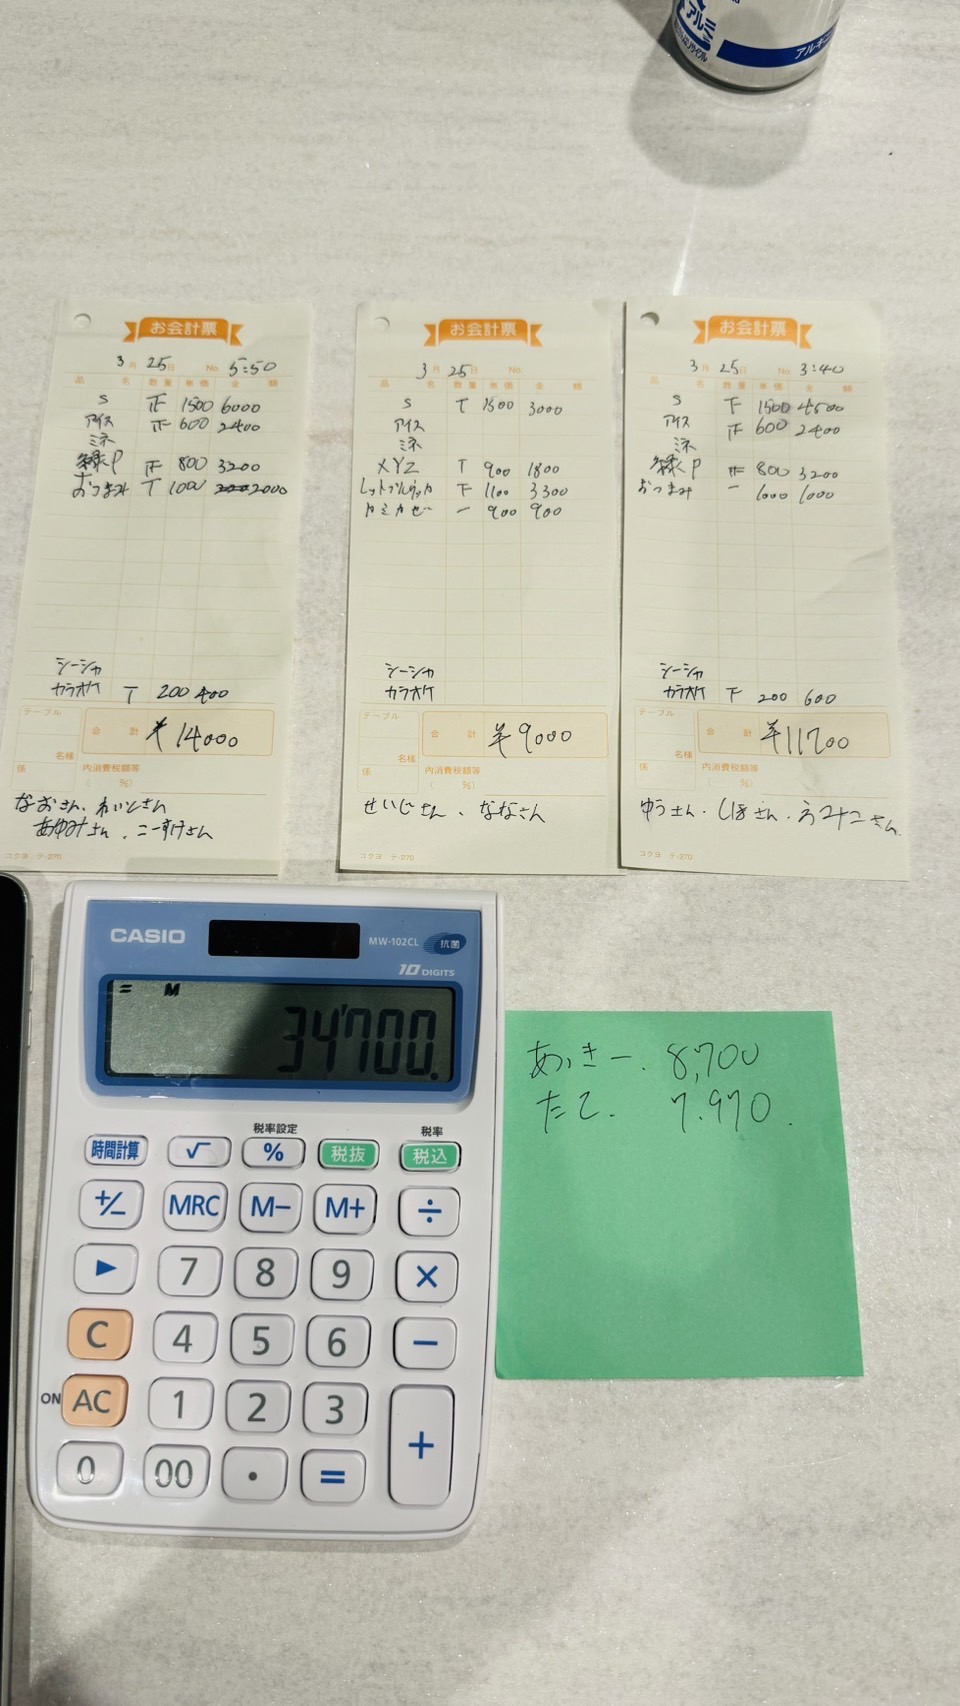 アルミ
アルギニ
お会計票
3月 25日 No. 5:50
品 名 数量 単価 金 額
S 正 1500 6000
アイス 正 600 2400
ミネ
緑P 正 800 3200
おつまみ T 1000 2000
シーシャ
カラオケ T 200 400
テーブル
合 計 ¥14000
名様
係 内消費税額等
( %)
なおさん、れいとさん
あゆみさん、こーすけさん
コクヨ テ-270
お会計票
3月 25日 No.
品 名 数量 単価 金 額
S T 1500 3000
アイス
ミネ
XYZ T 900 1800
レットブルウォッカ 下 1100 3300
カミカゼー 一 900 900
シーシャ
カラオケ
テーブル
合 計 ¥9000
名様
係 内消費税額等
( %)
せいじさん、ななさん
コクヨ テ-270
お会計票
3月 25日 No. 3:40
品 名 数量 単価 金 額
S 下 1500 4500
アイス 正 600 2400
ミネ
緑P 正 800 3200
おつまみ 一 1000 1000
シーシャ
カラオケ 下 200 600
テーブル
合 計 ¥11700
名様
係 内消費税額等
( %)
ゆうさん・しほさん・えみこさん
コクヨ テ-270
CASIO MW-102CL 抗菌
10 DIGITS
= M
34'700.
税率設定 税率
時間計算 √ % 税抜 税込
+/− MRC M− M+ ÷
▶ 7 8 9 ×
C 4 5 6 −
ON AC 1 2 3 +
0 00 • =
あっきー. 8,700
たて. 7.970.